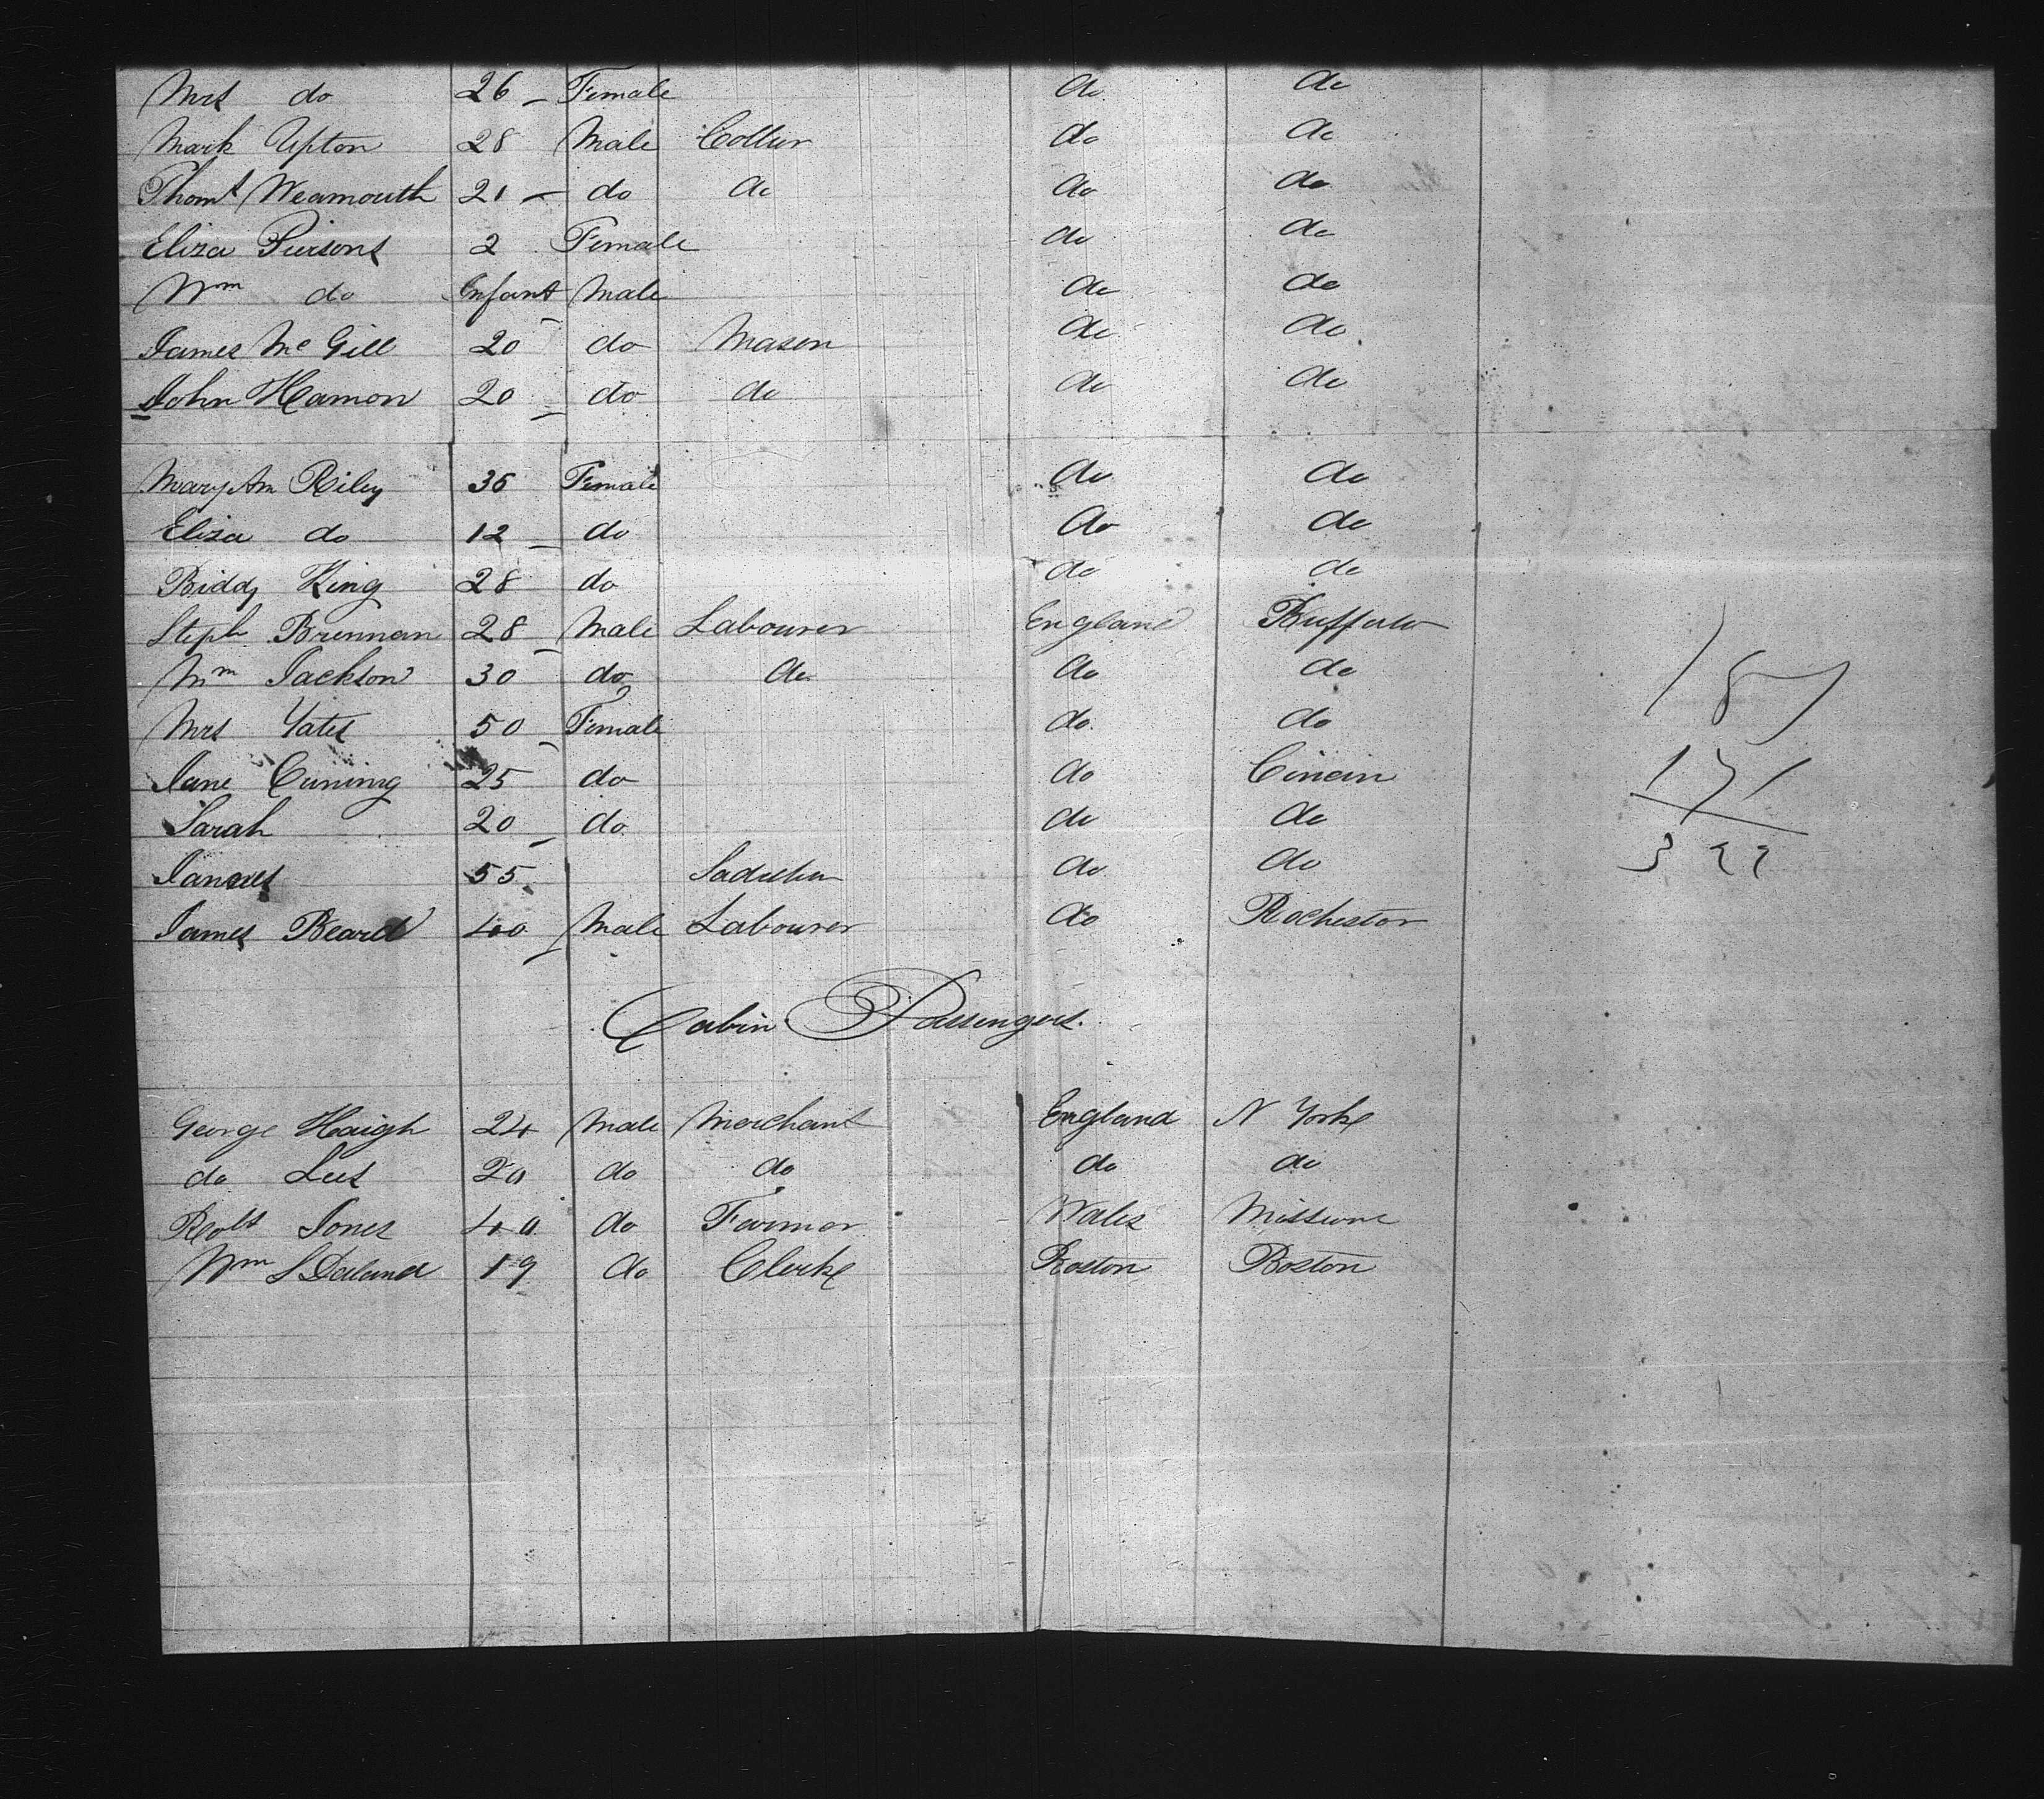 Mrs do 26 Female do do
Mark Upton 28 Male Collier do do
Thoms Weamouth 21 do do do do
Eliza Piersons 2 Female do do
Wm do Infant Male do do
James Mc Gill 20 do Mason do do
John Hamon 20 do do do do
Mary Am Riley 36 Female do do
Eliza do 12 do do do
Biddy King 28 do do do
Steph Brennan 28 Male Labourer England Buffalo
Wm Jackson 30 do do do do
Mrs Yates 50 Female do do
Jane Cuning 25 do do Cincin
Sarah 20 do do do
James 55 do do
James Beard 40 Male Labourer do Rochestor
Cabin Passengers.
George Haigh 24 Male Merchant England N Yorke
do Lees 20 do do do do
Robt Jones 40 do Farmer Wales
Wm S Daland 19 do Clerke Boston Boston